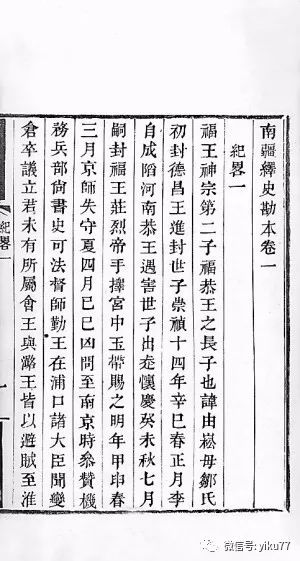 南疆繹史勘本卷一
紀畧一
福王神宗第二子福恭王之長子也諱由崧母鄒氏
初封德昌王進封世子崇禎十四年辛巳春正月李
自成䧟河南恭王遇害世子出走懷慶癸未秋七月
嗣封福王莊烈帝手擇宮中玉帶賜之明年甲申春
三月京師失守夏四月己巳凶問至南京時叅贊機
務兵部尙書史可法督師勤王在浦口諸大臣聞變
倉卒議立君未有所屬會王與潞王皆以避賊至淮
紀畧一
微信号: yiku77